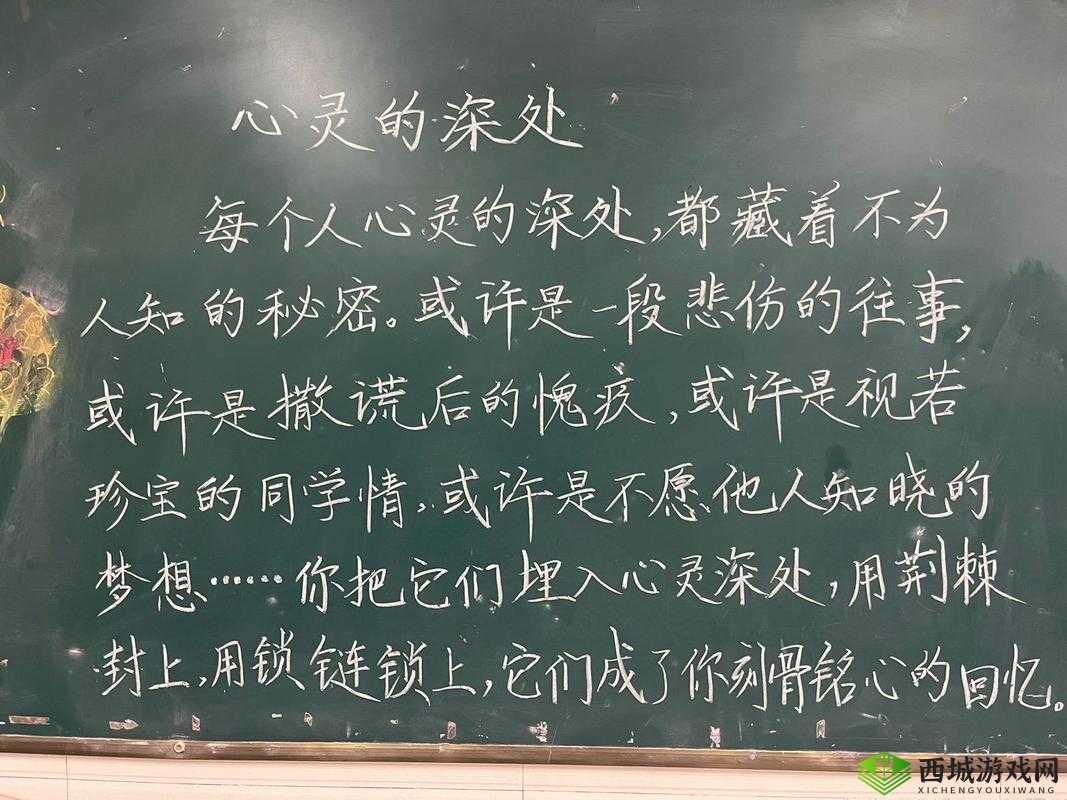 心灵的深处
每个人心灵的深处,都藏着不为
人知的秘密。或许是一段悲伤的往事,
或许是撒谎后的愧疚,或许是视若
珍宝的同学情,或许是不愿他人知晓的
梦想……你把它们埋入心灵深处,用荆棘
封上,用锁链锁上,它们成了你刻骨铭心的回忆。
西城游戏网
XICHENGYOUXIWANG